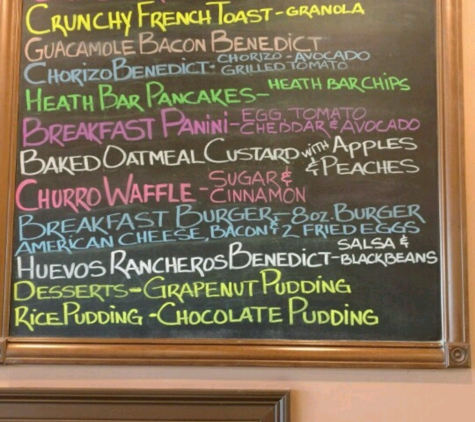 CRUNCHY FRENCH TOAST - GRANOLA
GUACAMOLE BACON BENEDICT
CHORIZO BENEDICT - CHORIZO - AVOCADO
GRILLED TOMATO
HEATH BAR PANCAKES - HEATH BAR CHIPS
BREAKFAST PANINI - EGG, TOMATO
CHEDDAR & AVOCADO
BAKED OATMEAL CUSTARD WITH APPLES
& PEACHES
CHURRO WAFFLE - SUGAR &
CINNAMON
BREAKFAST BURGER - 8OZ. BURGER
AMERICAN CHEESE, BACON & 2 FRIED EGGS
HUEVOS RANCHEROS BENEDICT - SALSA &
BLACKBEANS
DESSERTS - GRAPENUT PUDDING
RICE PUDDING - CHOCOLATE PUDDING